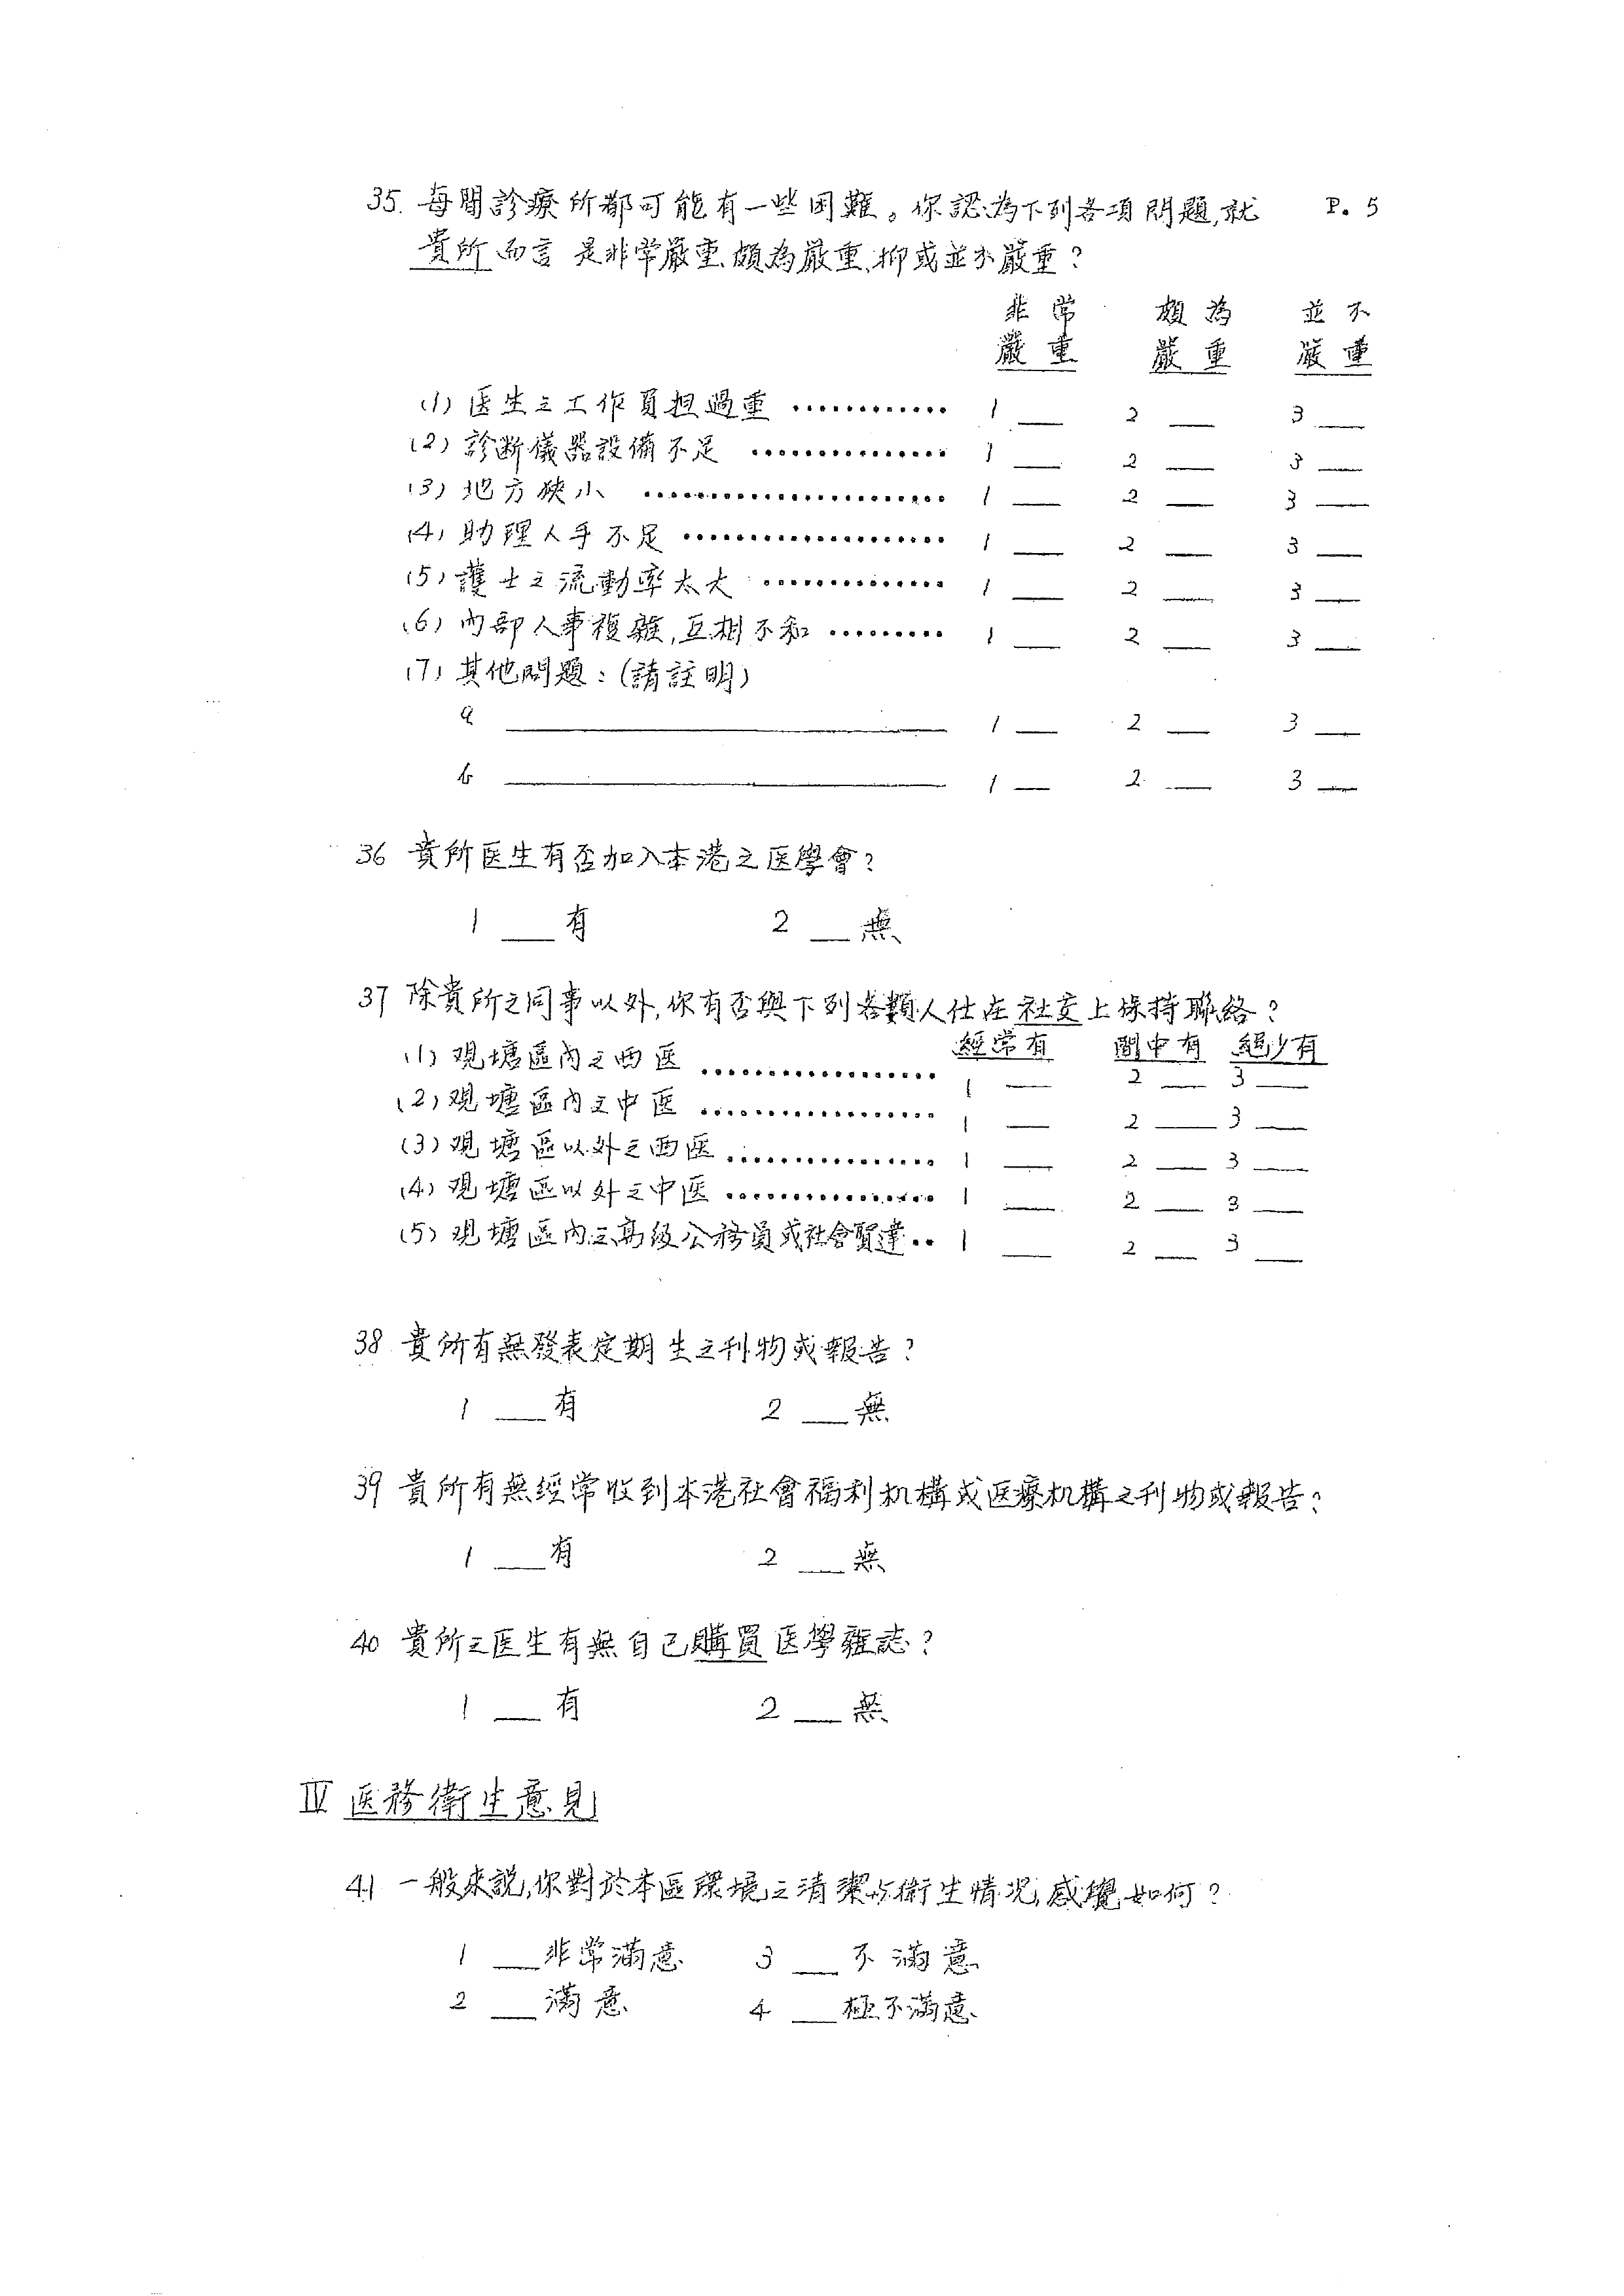 35. 每間診療所都可能有一些困難。你認為下列各項問題,就 P. 5
貴所而言 是非常嚴重、頗為嚴重、抑或並不嚴重?
非常 頗為 並不
嚴重 嚴重 嚴重
(1) 医生之工作員担過重 ............ 1 __ 2 __ 3 __
(2) 診断儀器設備不足 ............... 1 __ 2 __ 3 __
(3) 地方狹小 ....................... 1 __ 2 __ 3 __
(4) 助理人手不足 .................... 1 __ 2 __ 3 __
(5) 護士之流動率太大 .............. 1 __ 2 __ 3 __
(6) 內部人事複雜,互相不和 ......... 1 __ 2 __ 3 __
(7) 其他問題:(請註明)
a ____________________ 1 __ 2 __ 3 __
b ____________________ 1 __ 2 __ 3 __
36 貴所医生有否加入本港之医學會?
1 __ 有 2 __ 無
37 除貴所之同事以外,你有否與下列各類人仕在社交上保持聯絡?
經常有 間中有 絕少有
(1) 观塘區內之西医 .................. 1 __ 2 __ 3 __
(2) 观塘區內之中医 .................. 1 __ 2 __ 3 __
(3) 观塘區以外之西医 ................ 1 __ 2 __ 3 __
(4) 观塘區以外之中医 ................ 1 __ 2 __ 3 __
(5) 观塘區內之高級公務員或社會賢達 .. 1 __ 2 __ 3 __
38 貴所有無發表定期生之刊物或報告?
1 __ 有 2 __ 無
39 貴所有無經常收到本港社會福利机構或医療机構之刊物或報告?
1 __ 有 2 __ 無
40 貴所之医生有無自己購買医學雜誌?
1 __ 有 2 __ 無
IV 医務衛生意見
41 一般來説,你對於本區環境之清潔与衛生情况,感覺如何?
1 __ 非常滿意 3 __ 不滿意
2 __ 滿意 4 __ 極不滿意